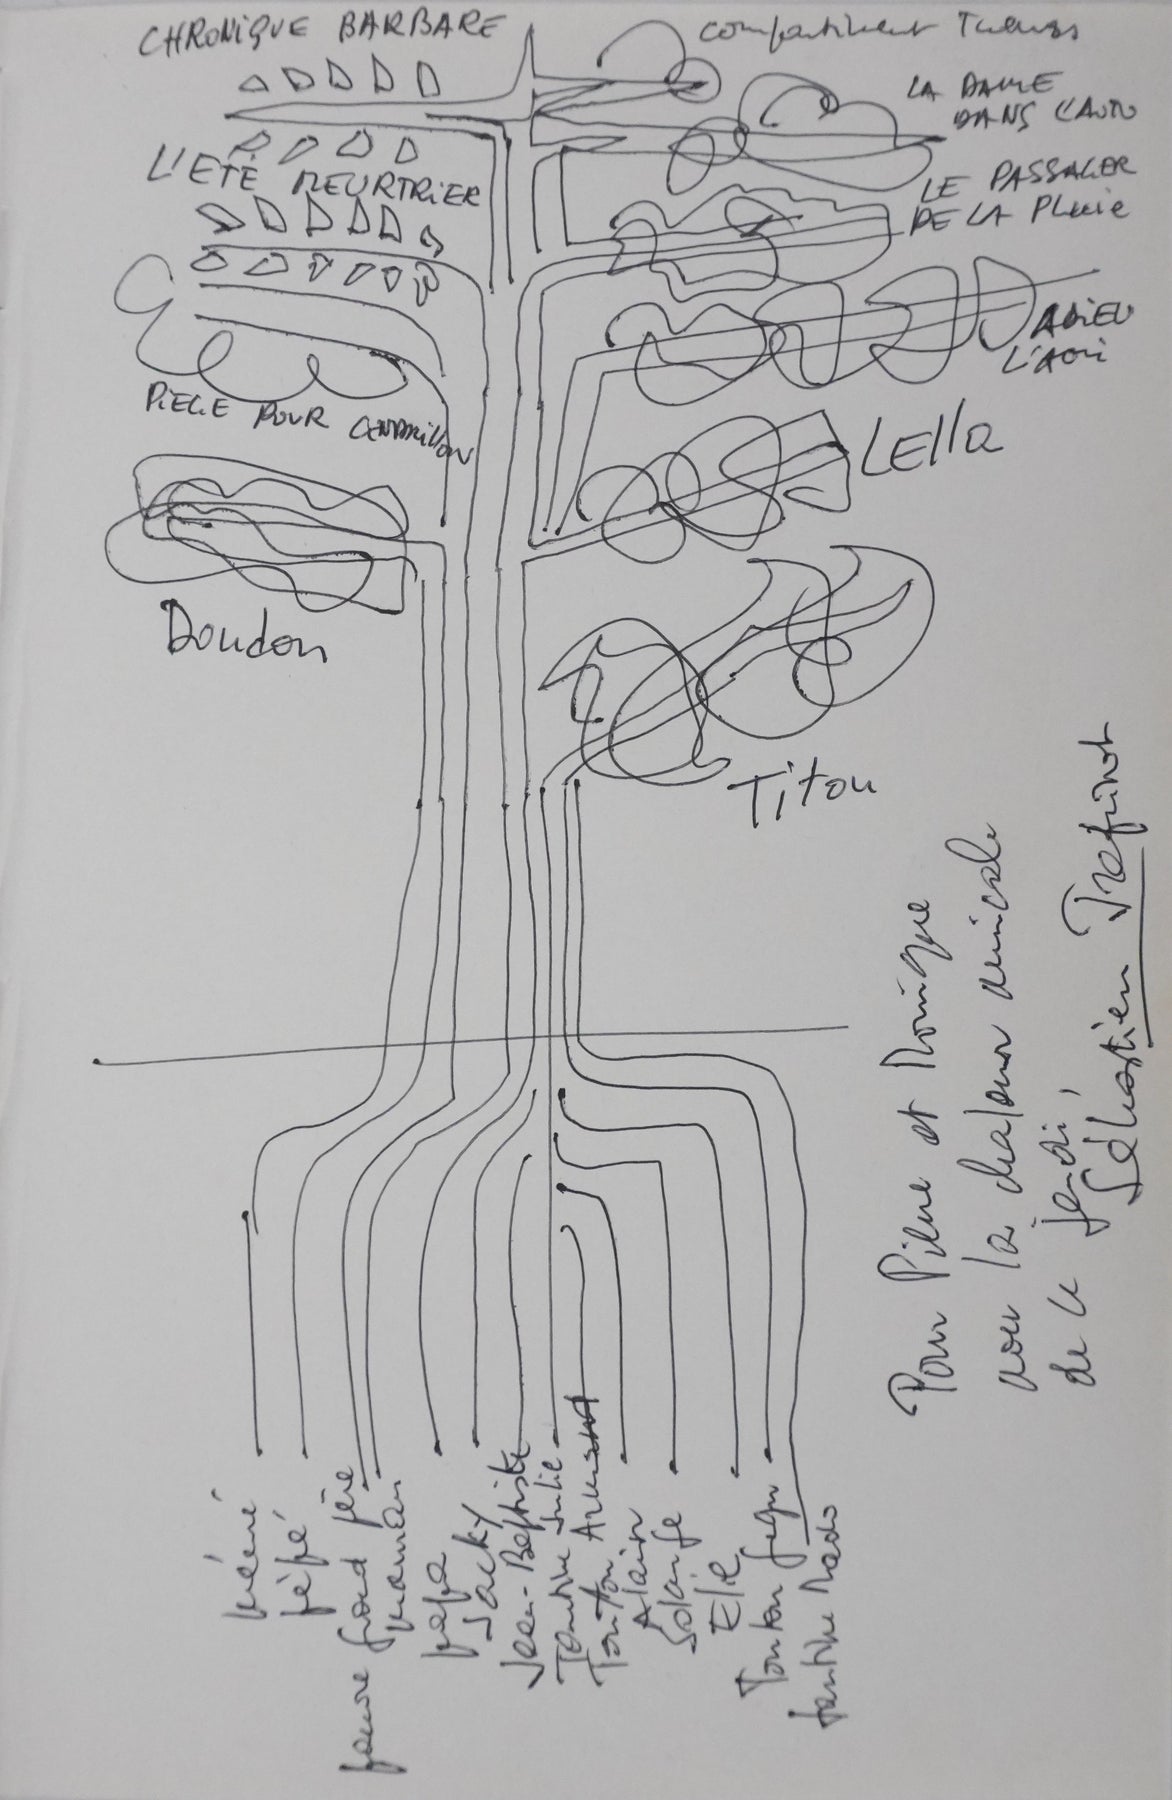 CHRONIQUE BARBARE
compartiment Tueurs
LA DAME
DANS L'AUTO
L'ETÉ MEURTRIER
LE PASSAGER
DE LA PLUIE
ADIEU
L'AMI
PIEGE POUR CENDRILLON
Lella
Doudou
Titou
Pour Pierre et Monique
avec la chaleur amicale
de ce jeudi,
Sébastien Japrisot
mémé
pépé
pauvre grand père
maman
papa
Jacky
Jean-Baptiste
Tantine Julie
Tonton Armand
Alain
Solange
Elie
Tonton Gegu
tantine Nado